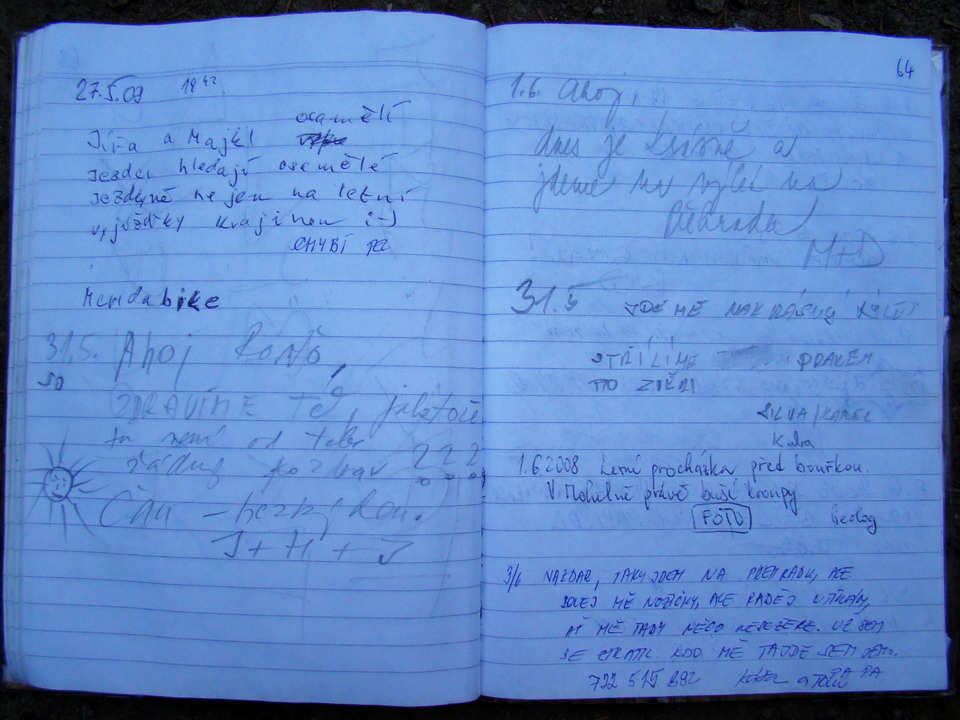 27.5.09 19 42
osamělí
Jířa a Majkl
jezdci hledají osamělé
jezdkyně nejen na letní
vyjížďky krajinou :-)
CHYBÍ
Meridabike
31.5. Ahoj
SO
ZDRAVÍME TĚ, jaktože
tu není od tebe
žádný pozdrav ???
Čau – hezký den.
J + H + J
64
1.6. Ahoj,
dnes je krásně a
jdeme na výlet na
Přehradu
M+D
31.5 JDEME NA KRÁSNÝ VÝLET
STŘÍLÍME PRAKEM
PO ZVĚŘI
SILVA/KAREL
Kuba
1.6.2008 Letní procházka před bouřkou.
V Mohelně právě buší kroupy
FOTO Geolog
3/6 NAZDAR, TAKY JDEM NA PŘEHRADU, ALE
BOLEJ MĚ NOŽIČKY, ALE RADĚJ UTÍKÁM,
AŤ MĚ TADY NĚCO NESEŽERE. UŽ SEM
SE ZTRATIL. KDO MĚ NAJDE SEM JEHO.
722 515 892 PA PA